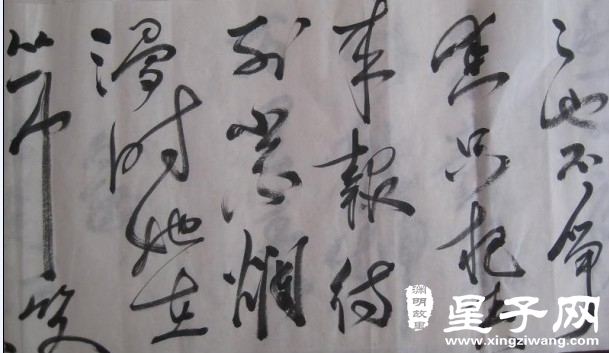 也不争
春只把春
来報待
到山花爛
漫时她在
丛中笑
渊明故里
星子网
www.xingziwang.com